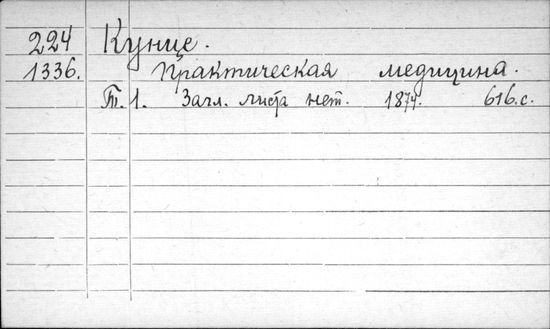 224 Кунце.
1336. Практическая медицина.
Т. 1. Загл. листа нет. 1874. 616.с.